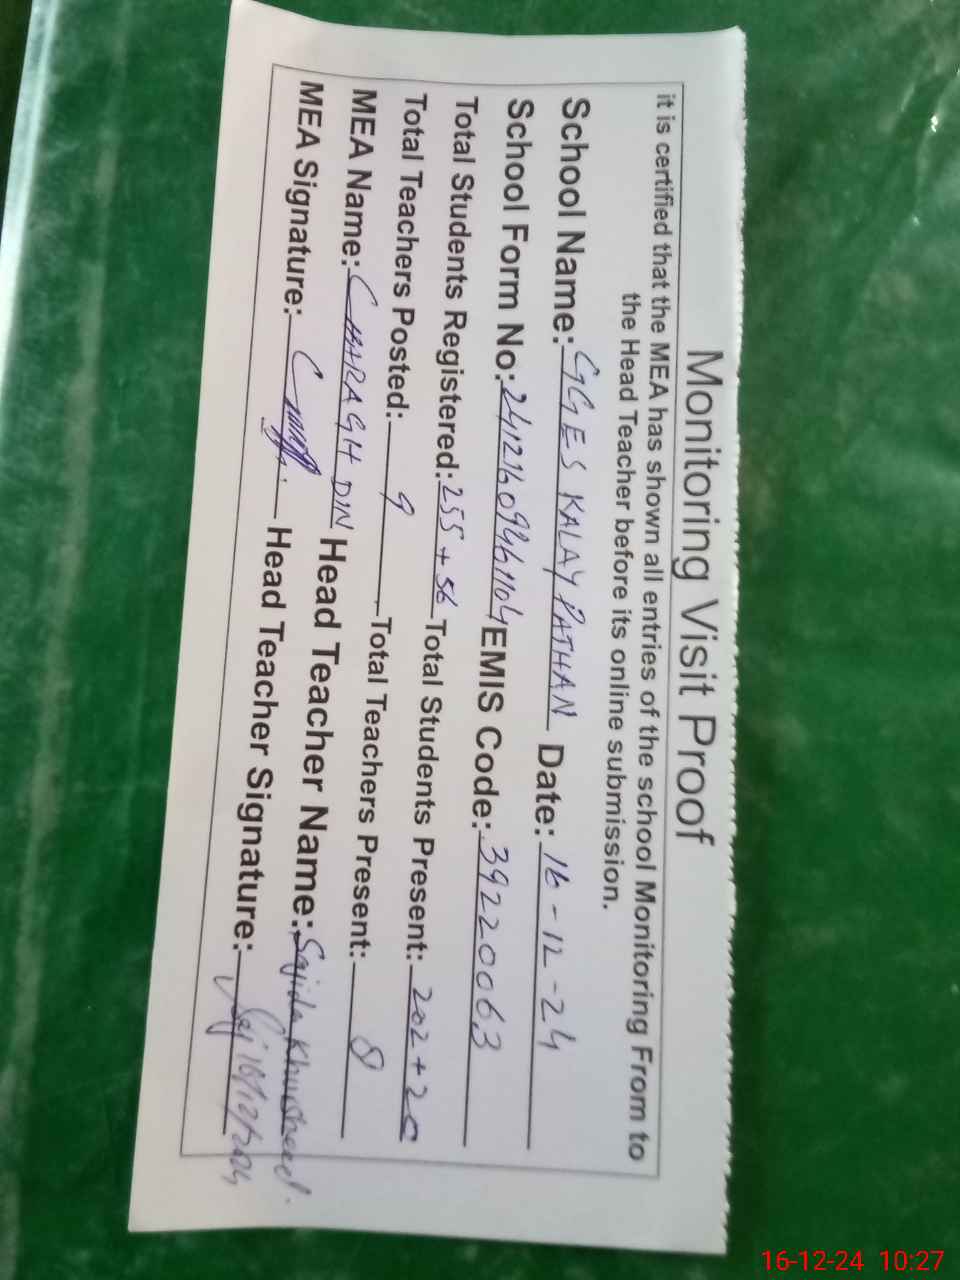 Monitoring Visit Proof
it is certified that the MEA has shown all entries of the school Monitoring From to
the Head Teacher before its online submission.
School Name: GGES KALAY PATHAN Date: 16-12-24
School Form No: 24121609461104 EMIS Code: 39220063
Total Students Registered: 255 + 56 Total Students Present: 202 + 20
Total Teachers Posted: 9 Total Teachers Present: 8
MEA Name: CHARAGH DIN Head Teacher Name: Sajida Khursheed.
MEA Signature: Head Teacher Signature: 16/12/2024
16-12-24 10:27